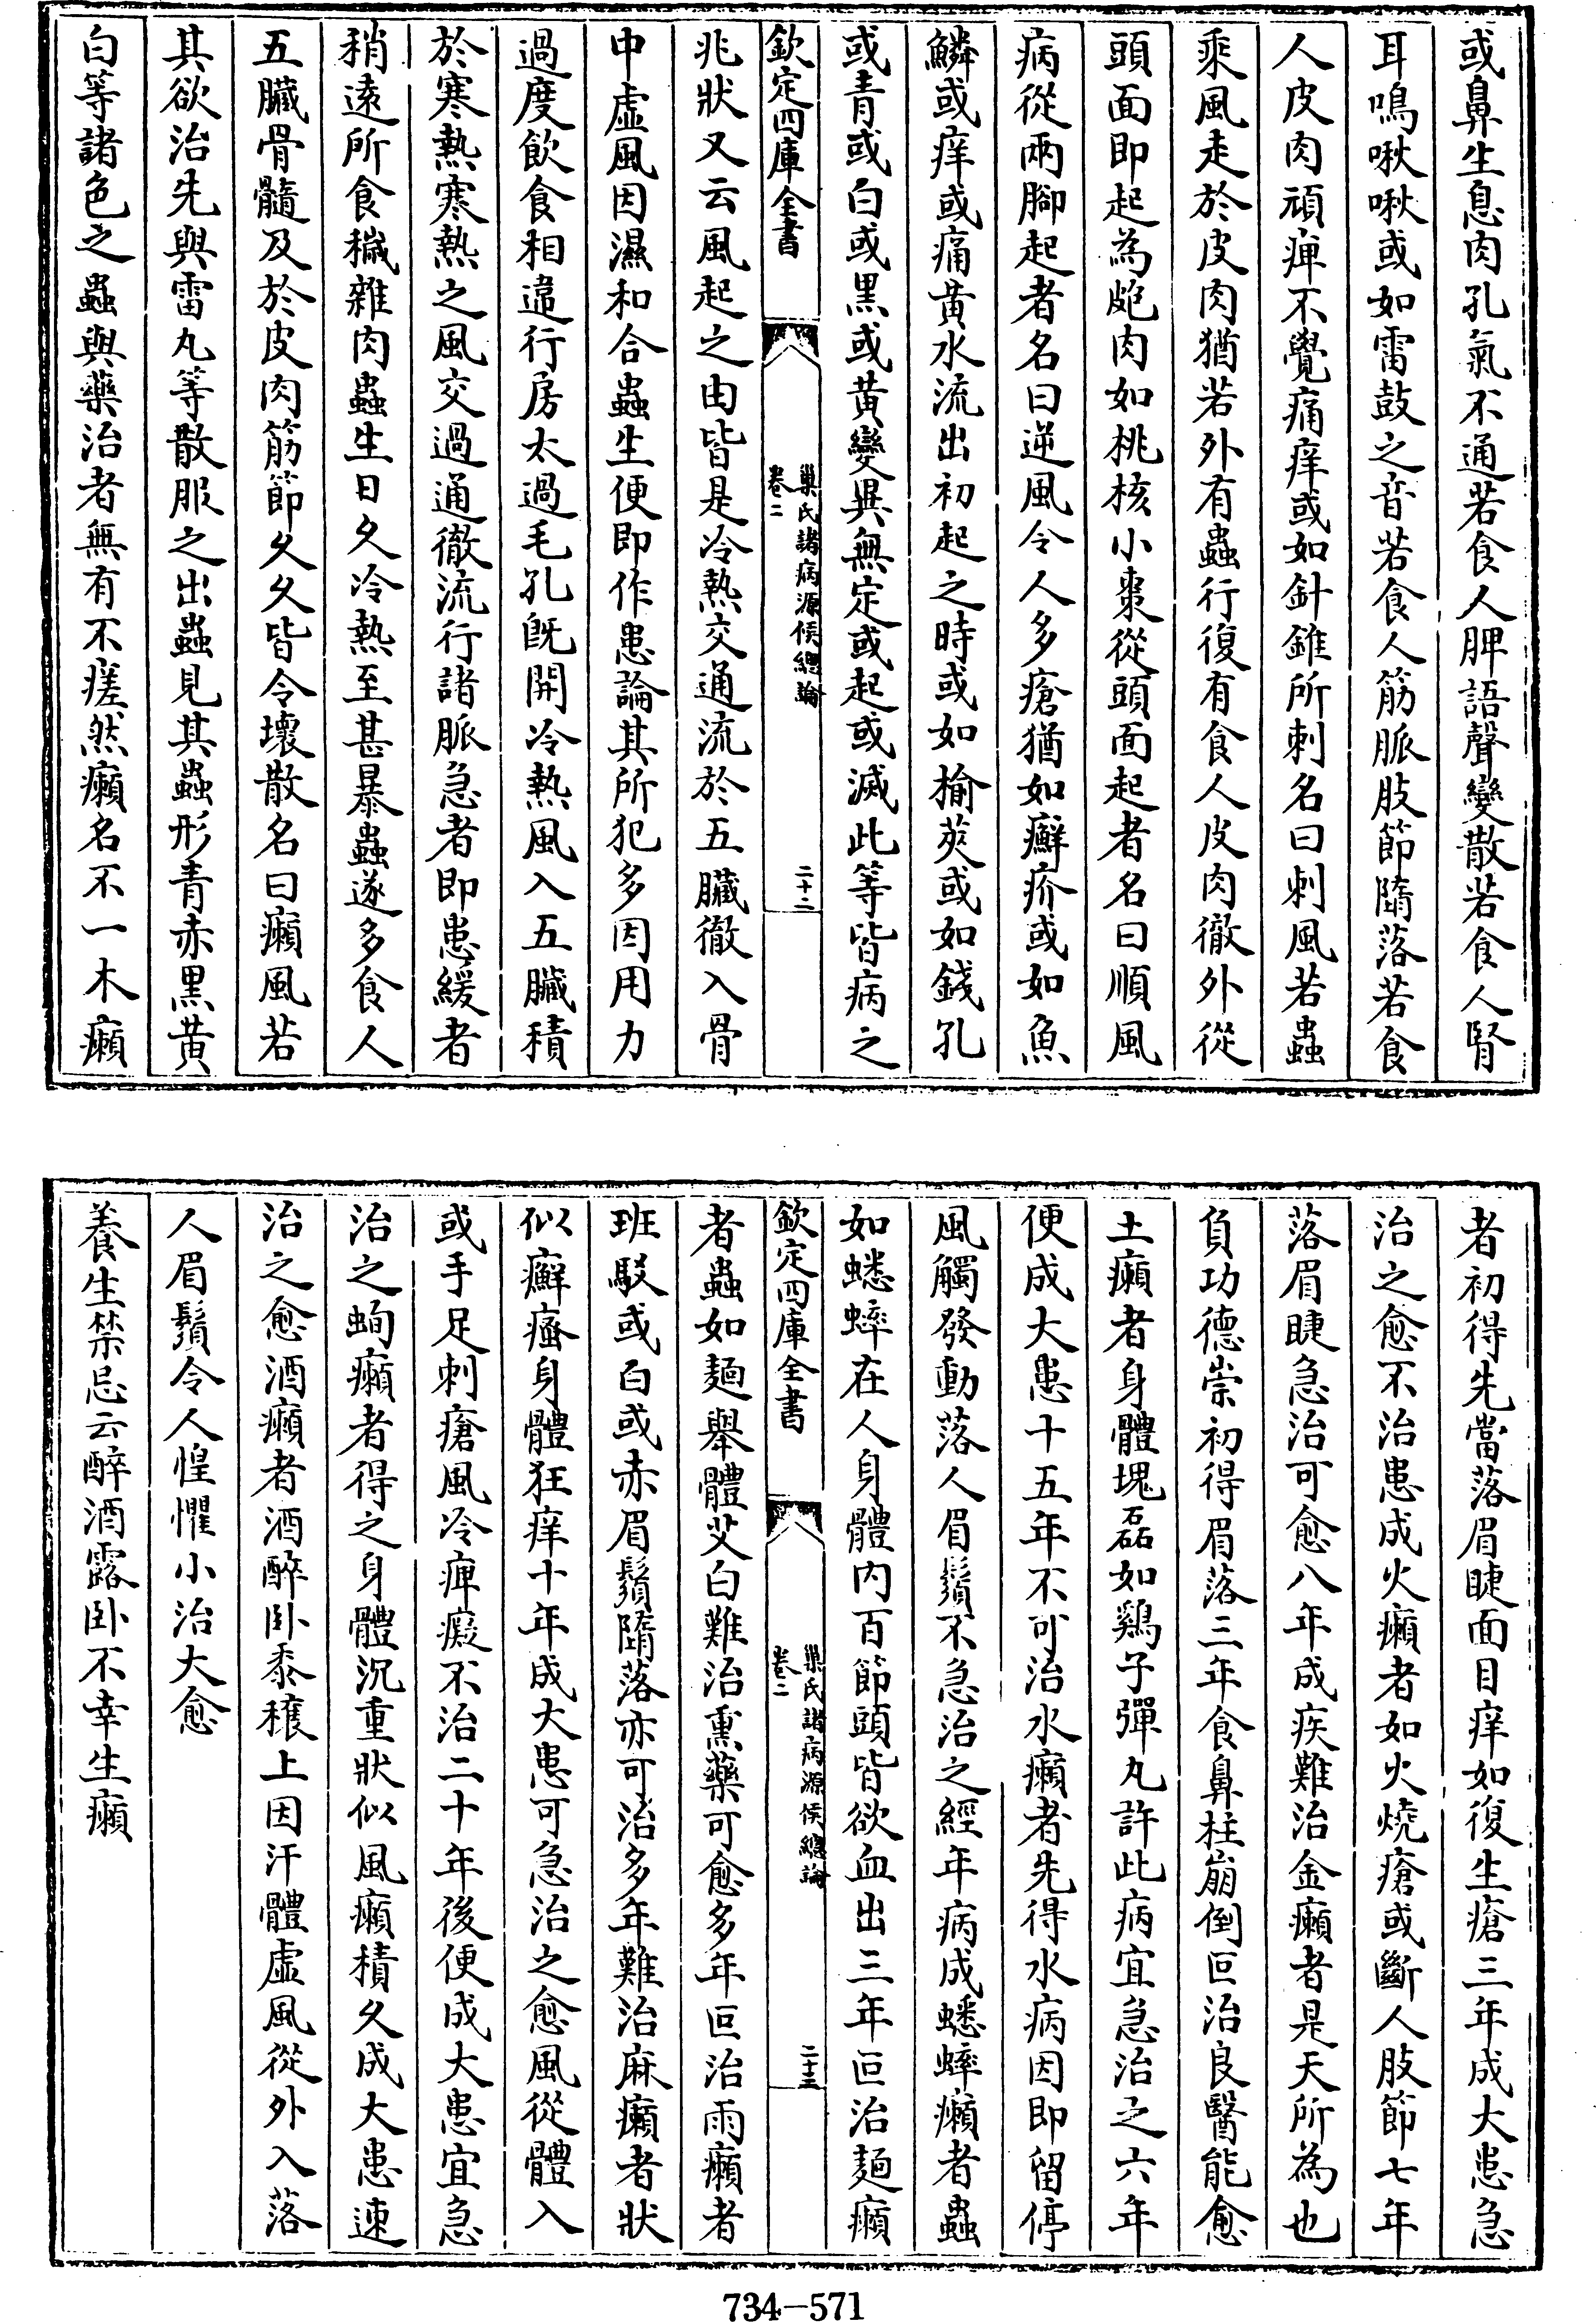 或鼻生息肉孔氣不通若食人脾語聲變散若食人腎
耳鳴啾啾或如雷鼓之音若食人筋脈肢節隳落若食
人皮肉頑痺不覺痛痒或如針錐所刺名曰刺風若蟲
乘風走於皮肉猶若外有蟲行復有食人皮肉徹外從
頭面即起為皰肉如桃核小棗從頭面起者名曰順風
病從兩腳起者名曰逆風令人多瘡猶如癬疥或如魚
鱗或痒或痛黃水流出初起之時或如榆莢或如錢孔
或青或白或黑或黃變異無定或起或滅此等皆病之
欽定四庫全書
巢氏諸病源候總論
卷二
二十二
兆狀又云風起之由皆是冷熱交通流於五臟徹入骨
中虛風因濕和合蟲生便即作患論其所犯多因用力
過度飲食相違行房太過毛孔既開冷熱風入五臟積
於寒熱寒熱之風交過通徹流行諸脈急者即患緩者
稍遠所食穢雜肉蟲生日久冷熱至甚暴蟲遂多食人
五臟骨髓及於皮肉筋節久久皆令壞散名曰癩風若
其欲治先與雷丸等散服之出蟲見其蟲形青赤黑黃
白等諸色之蟲與藥治者無有不瘥然癩名不一木癩
者初得先當落眉睫面目痒如復生瘡三年成大患急
治之愈不治患成火癩者如火燒瘡或斷人肢節七年
落眉睫急治可愈八年成疾難治金癩者是天所為也
負功德祟初得眉落三年食鼻柱崩倒叵治良醫能愈
土癩者身體塊磊如鷄子彈丸許此病宜急治之六年
便成大患十五年不可治水癩者先得水病因即留停
風觸發動落人眉鬚不急治之經年病成蟋蟀癩者蟲
如蟋蟀在人身體內百節頭皆欲血出三年叵治麵癩
欽定四庫全書
巢氏諸病源候總論
卷二
二十三
者蟲如麵舉體艾白難治熏藥可愈多年叵治雨癩者
班駁或白或赤眉鬚隳落亦可治多年難治麻癩者狀
似癬瘙身體狂痒十年成大患可急治之愈風從體入
或手足刺瘡風冷痺癡不治二十年後便成大患宜急
治之蚼癩者得之身體沉重狀似風癩積久成大患速
治之愈酒癩者酒醉卧黍穰上因汗體虛風從外入落
人眉鬚令人惶懼小治大愈
養生禁忌云醉酒露卧不幸生癩
734-571